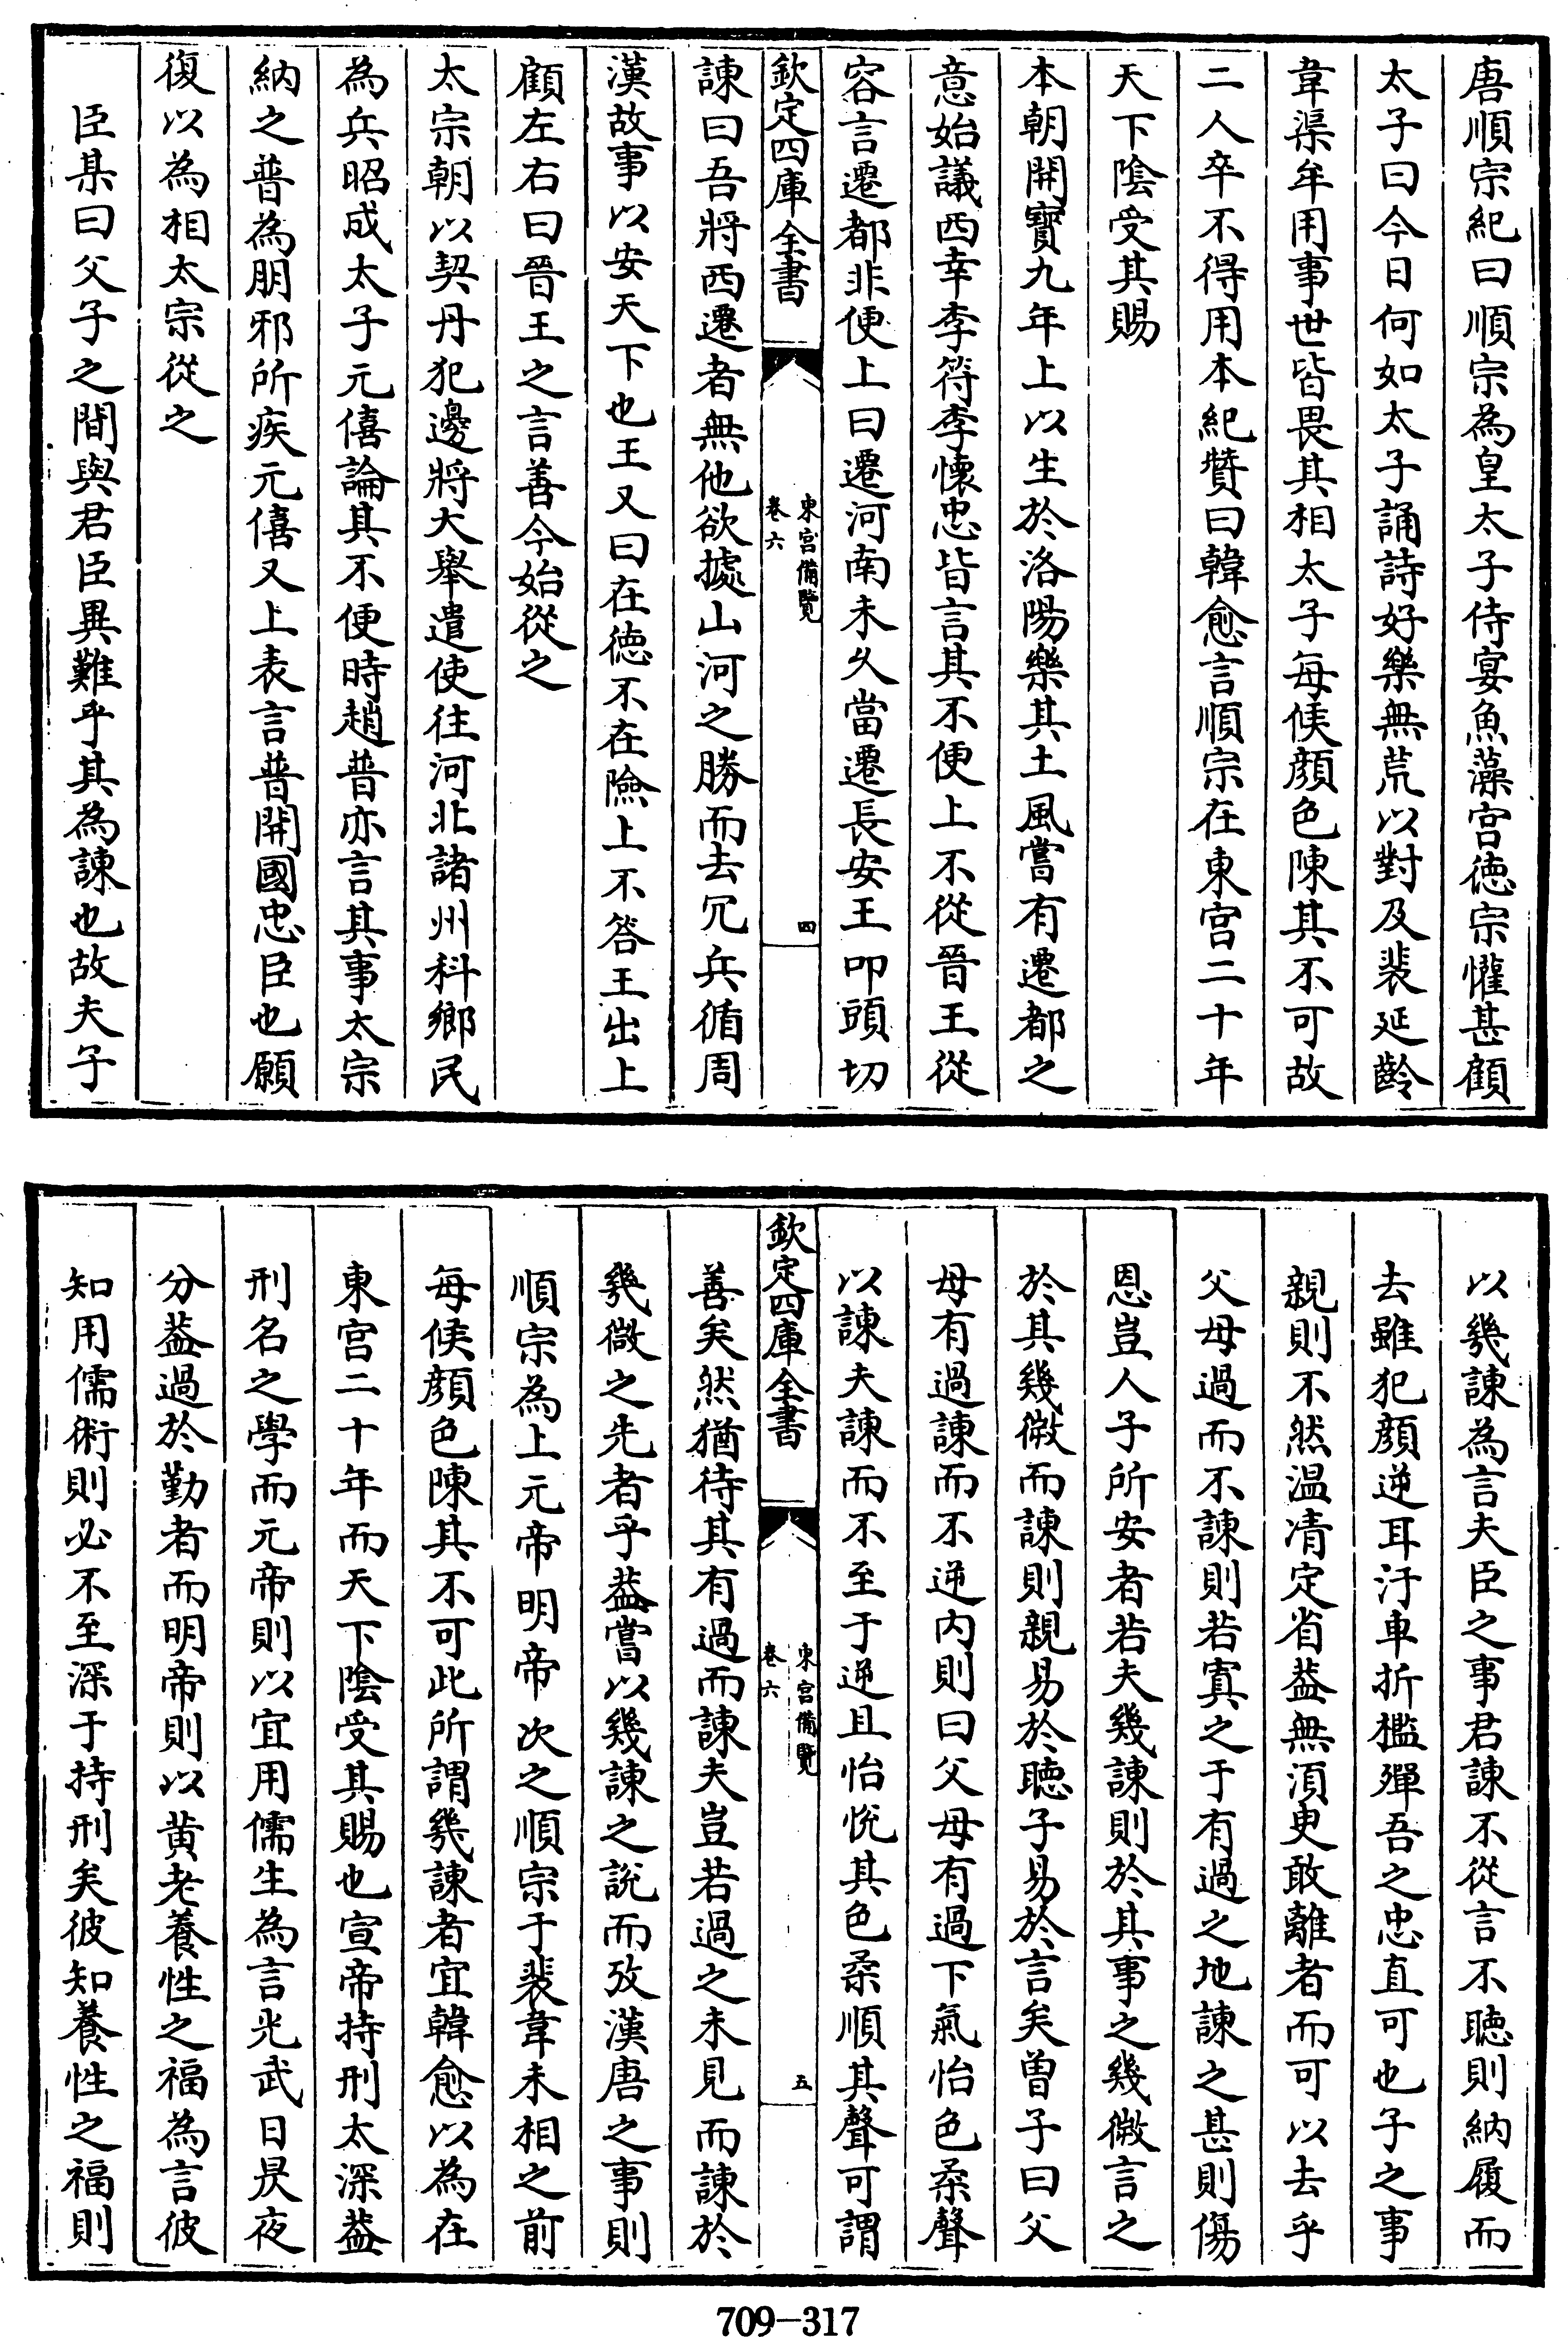 唐順宗紀曰順宗為皇太子侍宴魚藻宫徳宗懽甚顧
太子曰今日何如太子誦詩好樂無荒以對及裴延齡
韋渠牟用事世皆畏其相太子每候顔色陳其不可故
二人卒不得用本紀贊曰韓愈言順宗在東宫二十年
天下陰受其賜
本朝開寳九年上以生於洛陽樂其土風嘗有遷都之
意始議西幸李符李懐忠皆言其不便上不從晉王從
容言遷都非便上曰遷河南未乆當遷長安王叩頭切
欽定四庫全書
東宫備覽
卷六
四
諫曰吾將西遷者無他欲據山河之勝而去冗兵循周
漢故事以安天下也王又曰在徳不在險上不答王出上
顧左右曰晉王之言善今始從之
太宗朝以契丹犯邊將大舉遣使往河北諸州科鄉民
為兵昭成太子元僖論其不便時趙普亦言其事太宗
納之普為朋邪所疾元僖又上表言普開國忠臣也願
復以為相太宗從之
臣某曰父子之間與君臣異難乎其為諫也故夫子
以幾諫為言夫臣之事君諫不從言不聴則納履而
去雖犯顔逆耳汙車折檻殫吾之忠直可也子之事
親則不然温凊定省葢無湏臾敢離者而可以去乎
父母過而不諫則若寘之于有過之地諫之甚則傷
恩豈人子所安者若夫幾諫則於其事之幾微言之
於其幾微而諫則親易於聴子易於言矣曽子曰父
母有過諫而不逆内則曰父母有過下氣怡色柔聲
以諫夫諫而不至于逆且怡悅其色柔順其聲可謂
欽定四庫全書
東宫備覽
卷六
五
善矣然猶待其有過而諫夫豈若過之未見而諫於
幾微之先者乎葢嘗以幾諫之說而攷漢唐之事則
順宗為上元帝明帝次之順宗于裴韋未相之前
每候顔色陳其不可此所謂幾諫者宜韓愈以為在
東宫二十年而天下陰受其賜也宣帝持刑太深葢
刑名之學而元帝則以宜用儒生為言光武日昃夜
分葢過於勤者而明帝則以黄老養性之福為言彼
知用儒術則必不至深于持刑矣彼知養性之福則
709-317